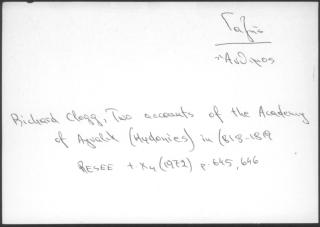 Γαζῆς
Ἄνθιμος
Richard Clogg, Two accounts of the Academy
of Ayvalik (Kydonies) in 1818-1819
RESEE t. X4 (1972) p. 645, 646